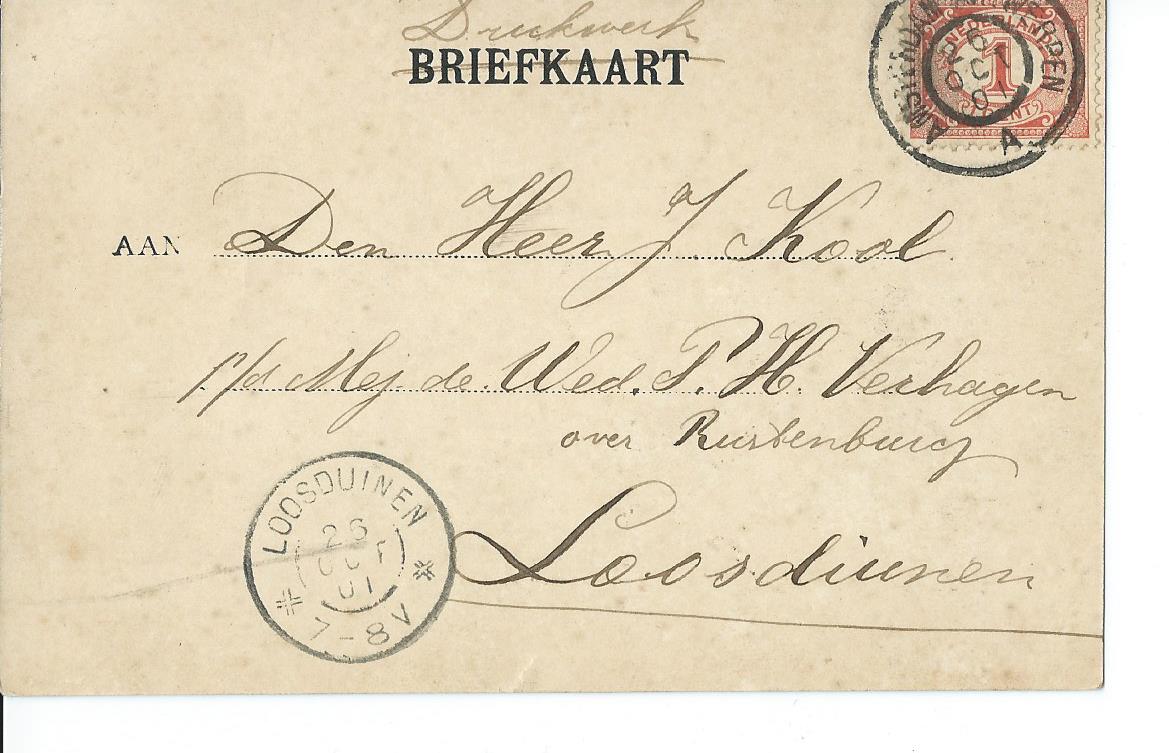 Drukwerk
BRIEFKAART
NEDERLAND
1
CENT
AMSTERDAM-ANTWERPEN
26 OCT 01
A
AAN Den Heer J. Kool
p/a Mej. de Wed. P. H. Verhagen
over Rustenburg
Loosduinen
LOOSDUINEN
26
OCT
01
7-8V